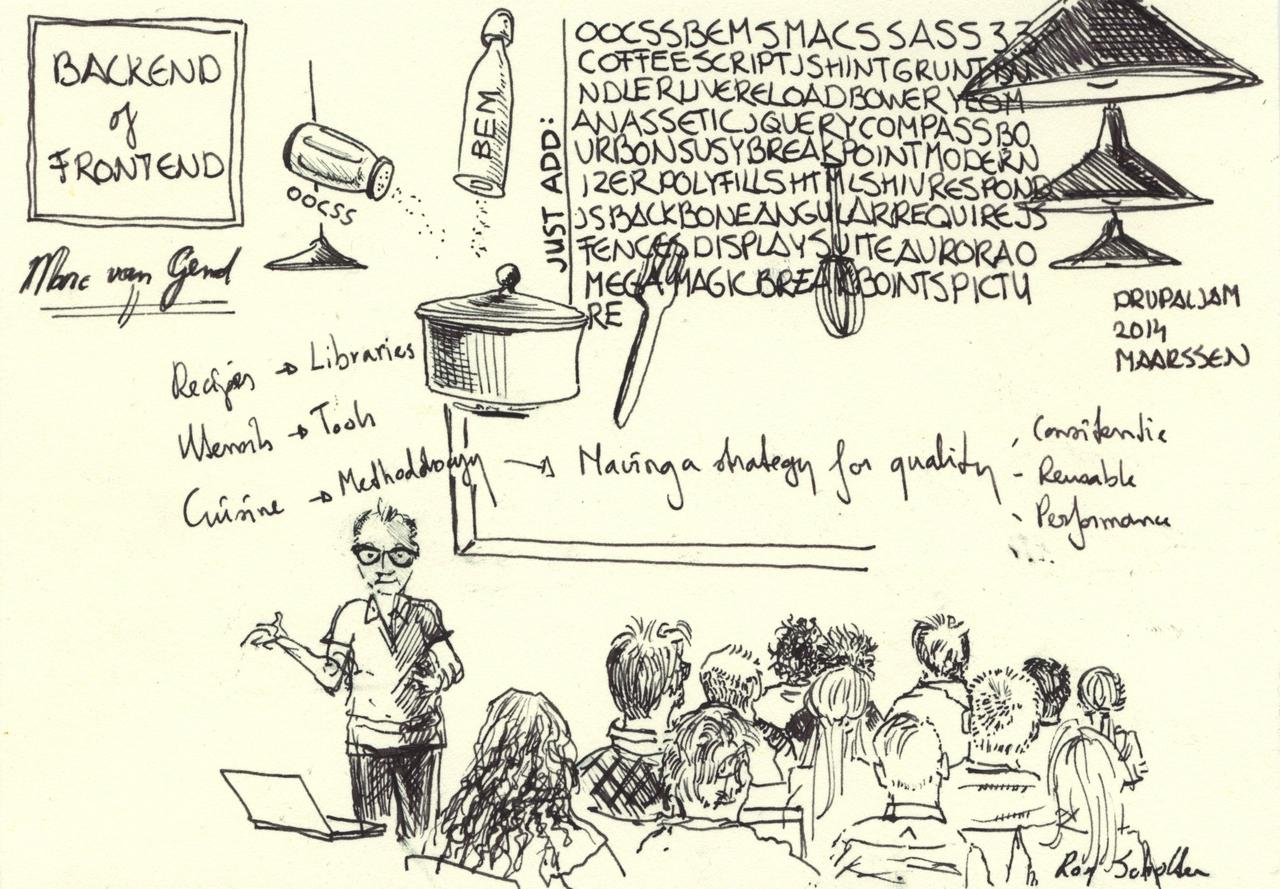 BACKEND
of
FRONTEND
Marc van Gend
OOCSS
BEM
JUST ADD:
OOCSSBEMSMACSSASS33
COFFEESCRIPTJSHINTGRUNTBU
NDLERLIVERELOADBOWERYEOM
ANASSETICJQUERYCOMPASSBO
URBONSUSYBREAKPOINTMODERN
IZERPOLYFILLSHTMLSHIVRESPOND
JSBACKBONEANGULARREQUIREJS
FENCESDISPLAYSUITEAURORAO
MEGAMAGICBREAKBOINTSPICTU
RE
DRUPALJAM
2014
MAARSSEN
Recipes → Libraries
Utensils → Tools
Cuisine → Methodology → Having a strategy for quality
- Consistentie
- Reusable
- Performance
- ....
Roy Scholten